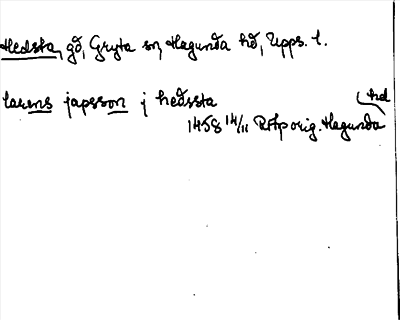 Hedsta, gd, Gryta sn, Hagunda hd, Upps. l.
larens japsson j hedssta
hd
1458 14/11 RAp orig. Hagunda